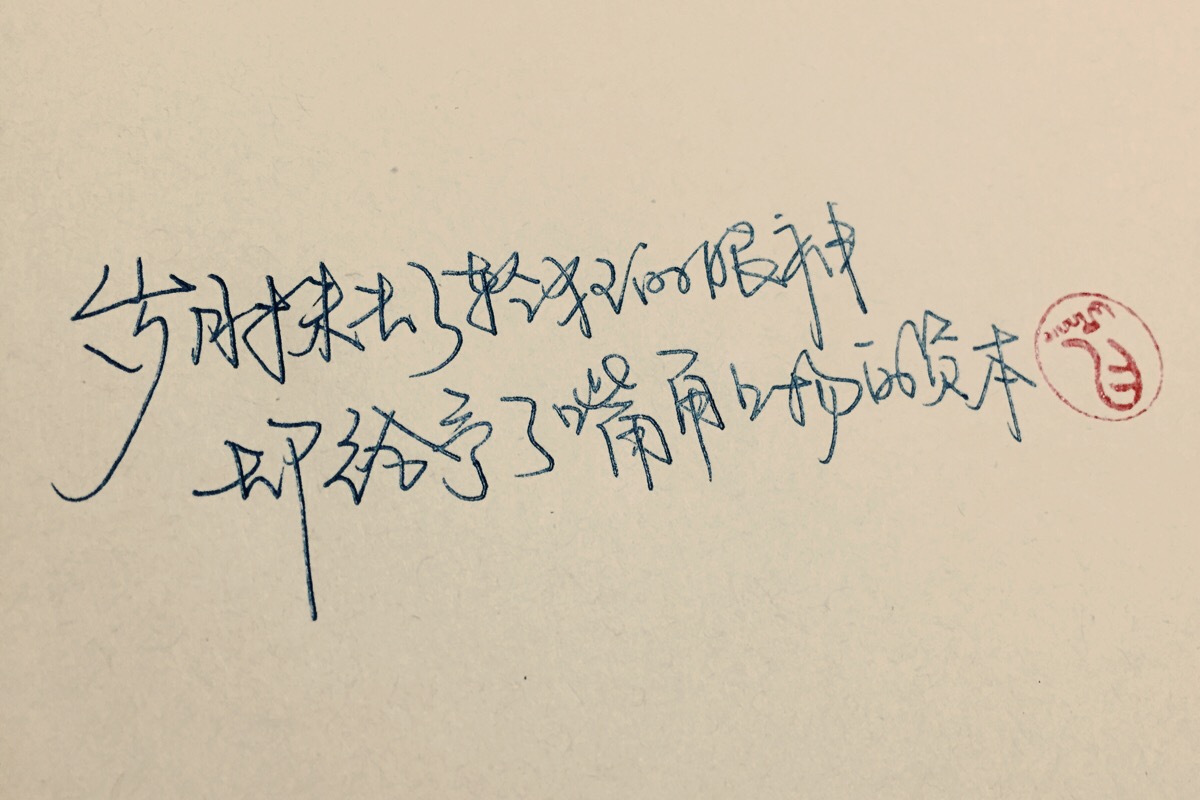 岁月抹去了轻狂的眼神
却给予了嘴角上扬的资本